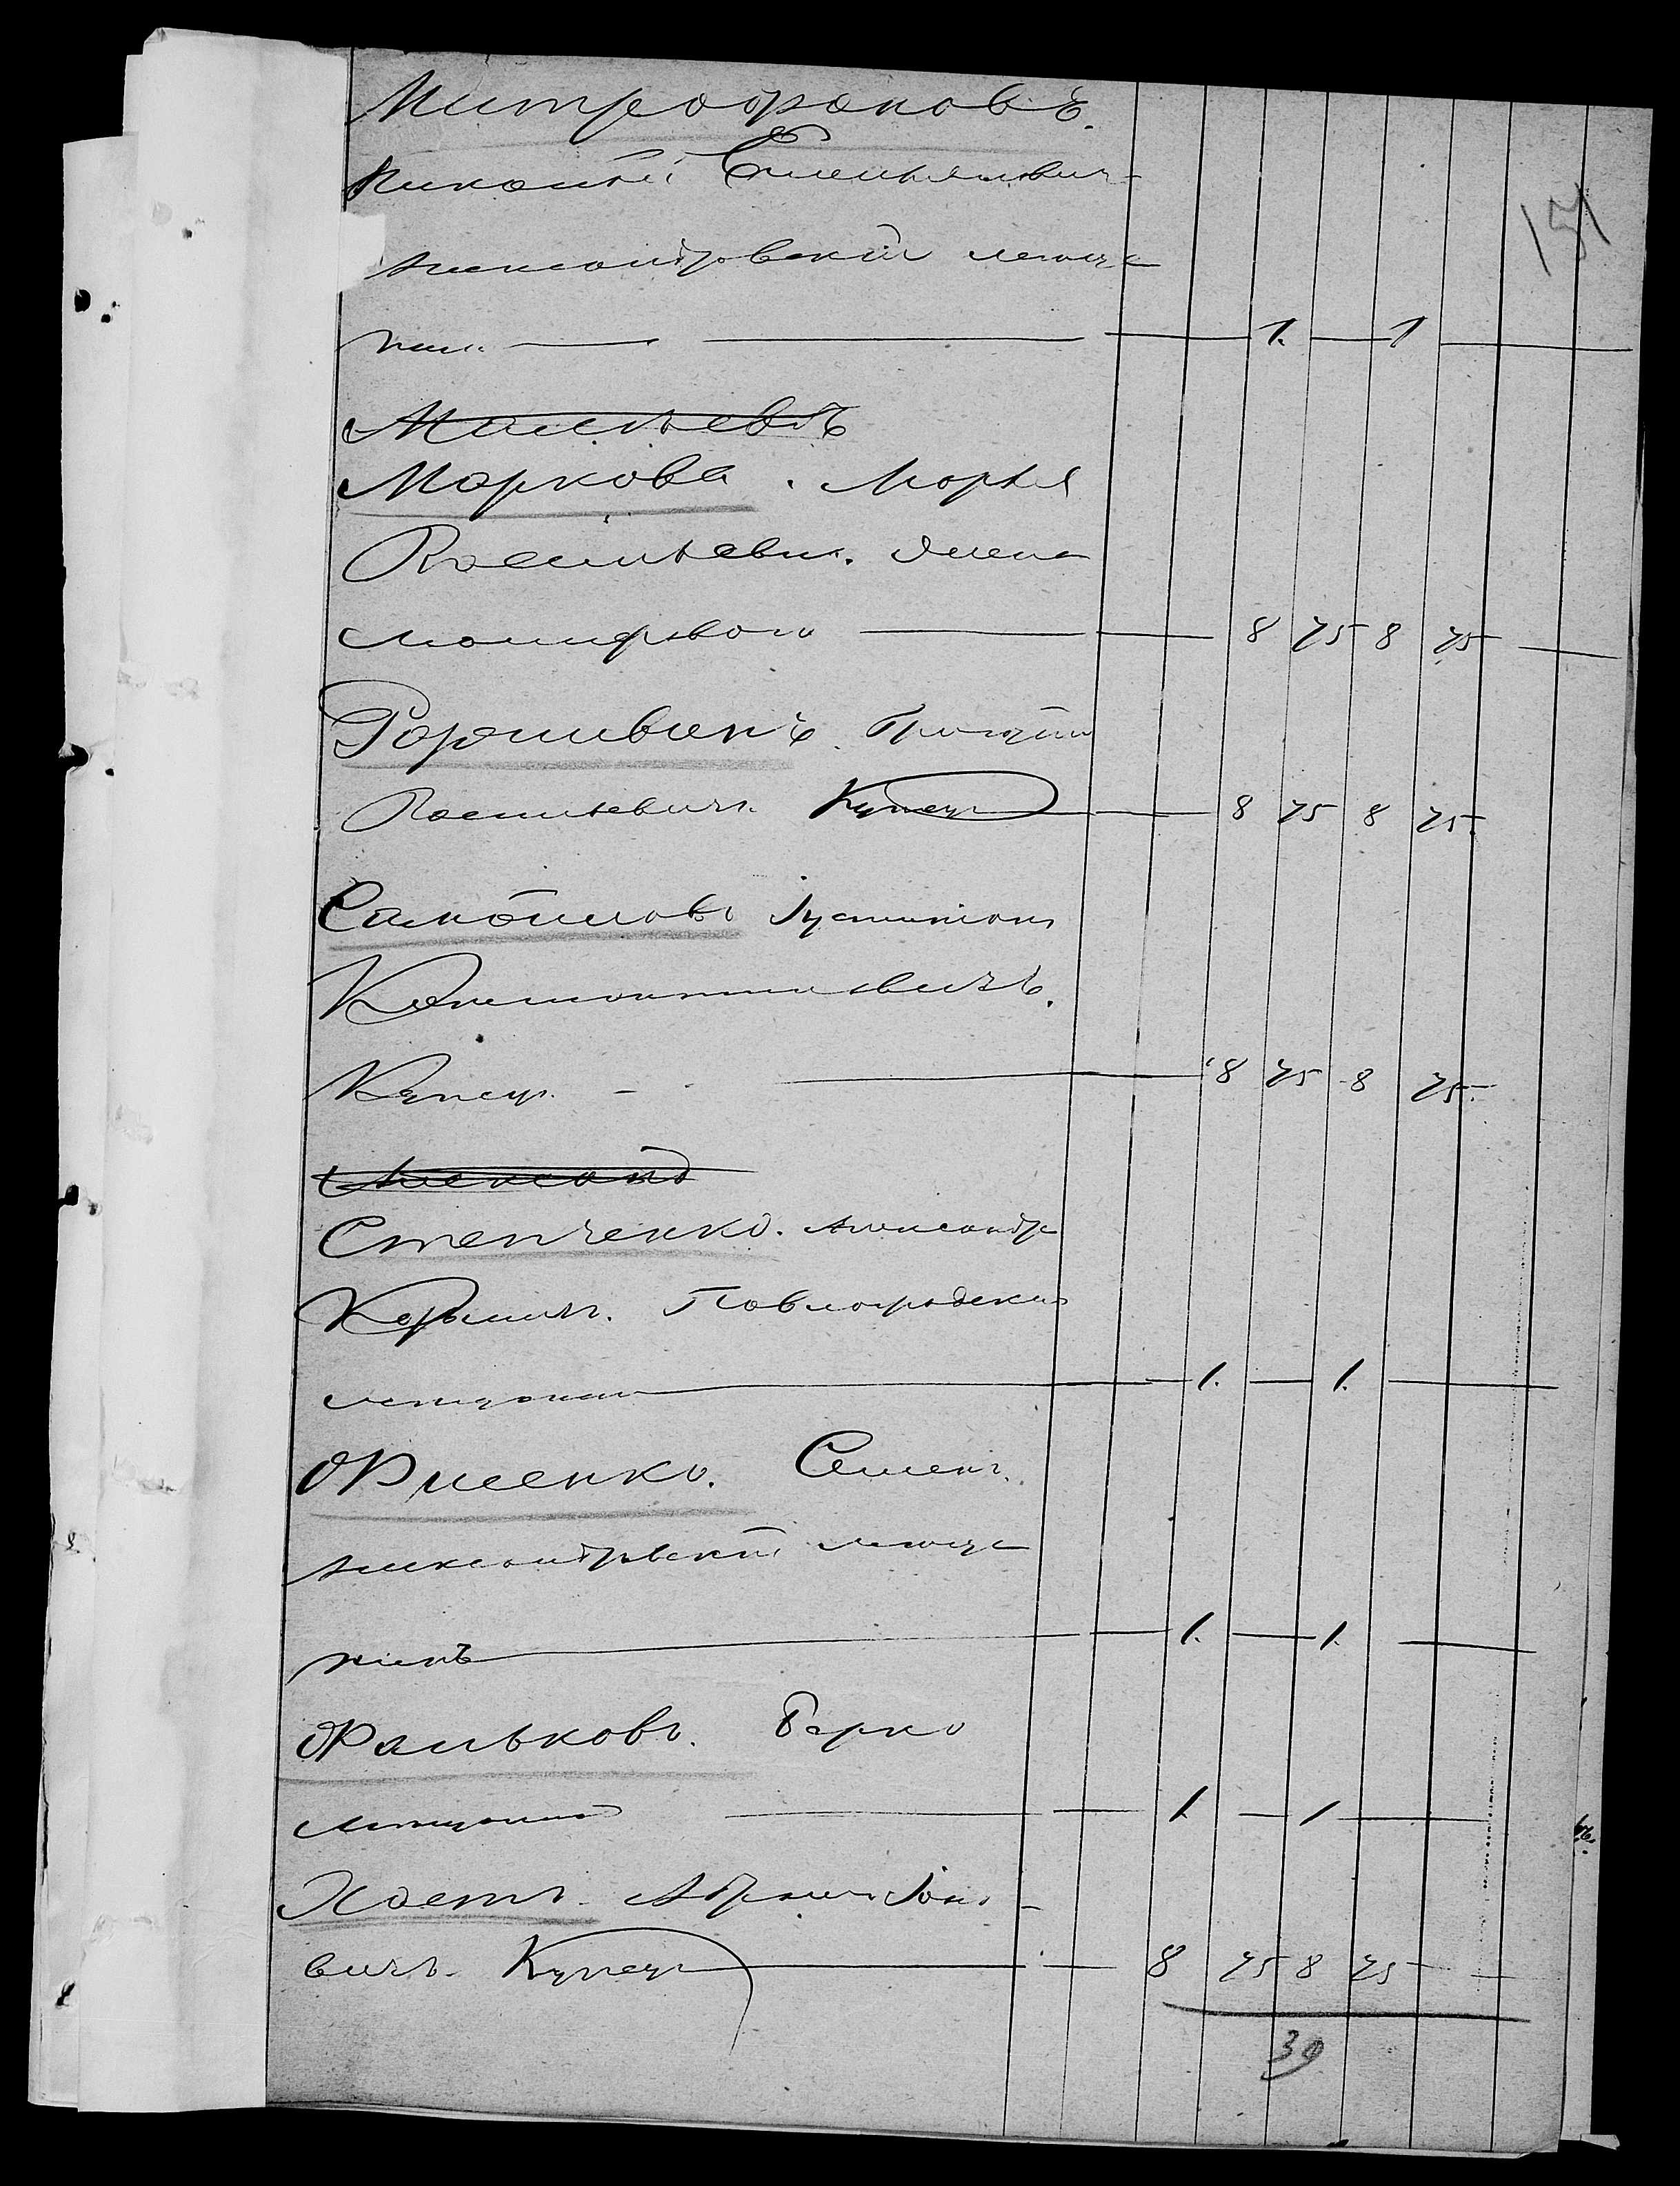 Митрофановъ.
Николай Емельянович
151
Александровский меща
нин 1. 1
Мальевъ
Маркова. Марья
Васильевн. Жена
8 75 8 75
Григорий
Васильевичъ Купец 8 75 8 75.
Самойловъ Iустинъ
Константиновичъ.
Купец. 8 75 8 75.
Александ
Степченко. Александр
Карпичъ. Павлоградский
мещанин 1. 1.
Фисенко. Семенъ.
Александровский меща
нинъ 1. 1.
Фальковъ. Берко
мещанин 1. 1
Хаетъ. Абрам Iоно
вичъ. Купец 8 75 8 75
39